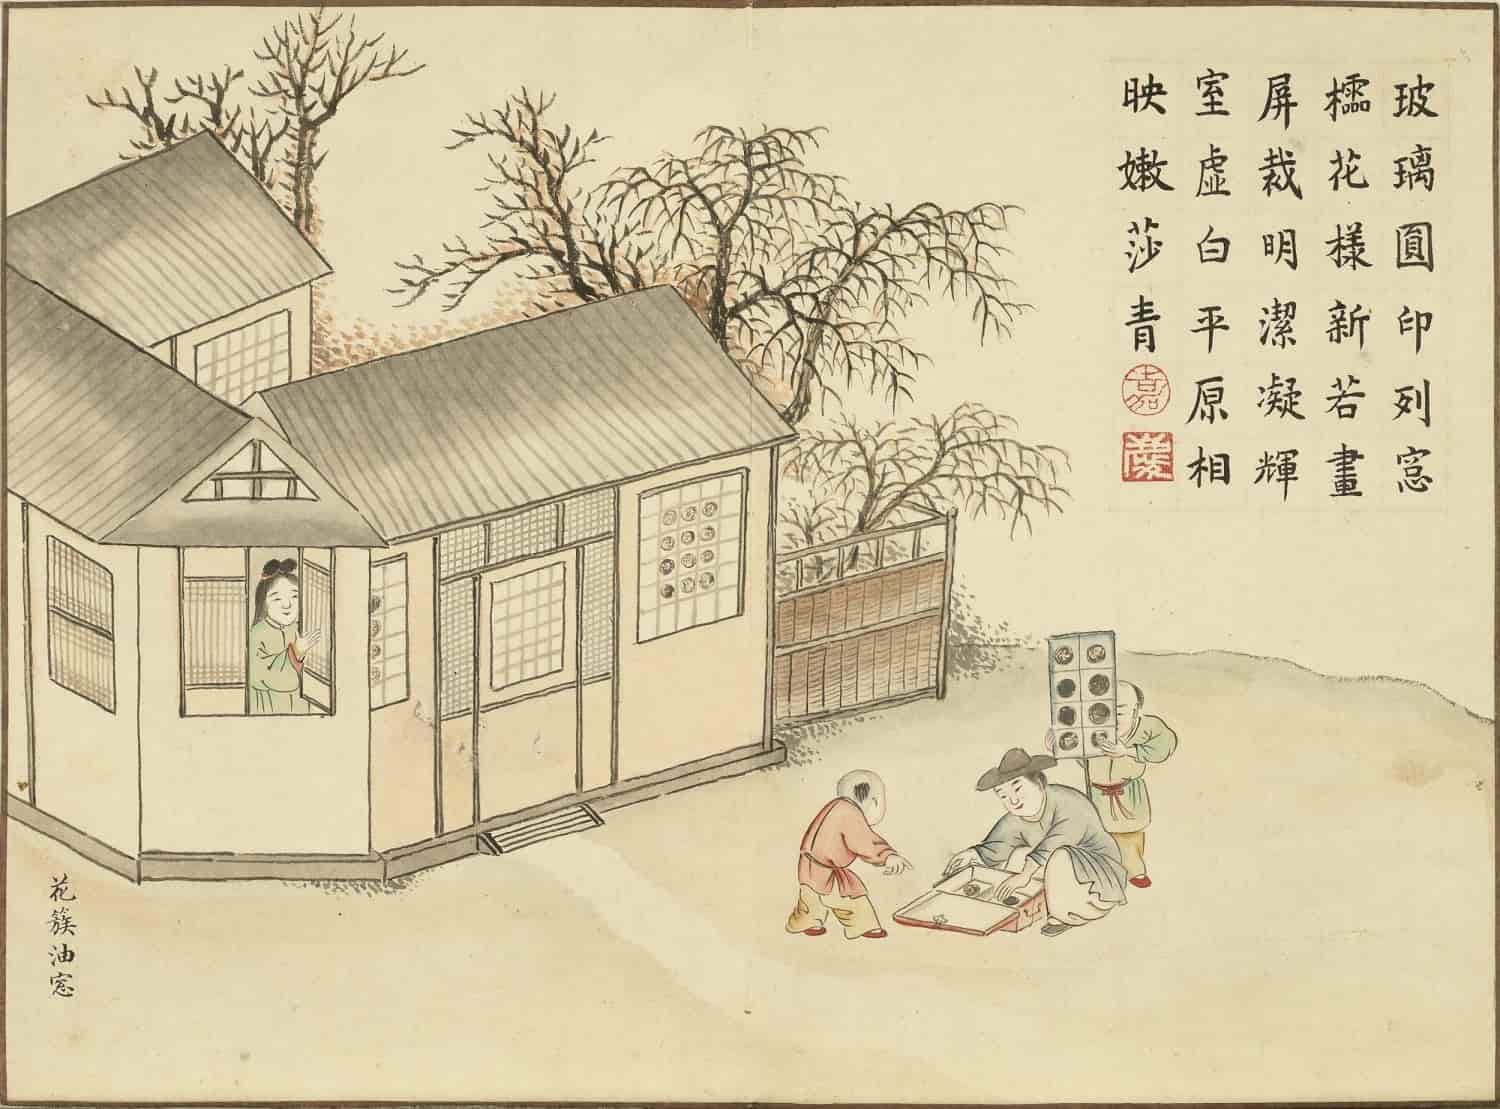 玻璃圓印列窓
櫺花樣新若畫
屏裁明潔凝輝
室虛白平原相
映嫩莎青
嘉
慶
花簇油窓